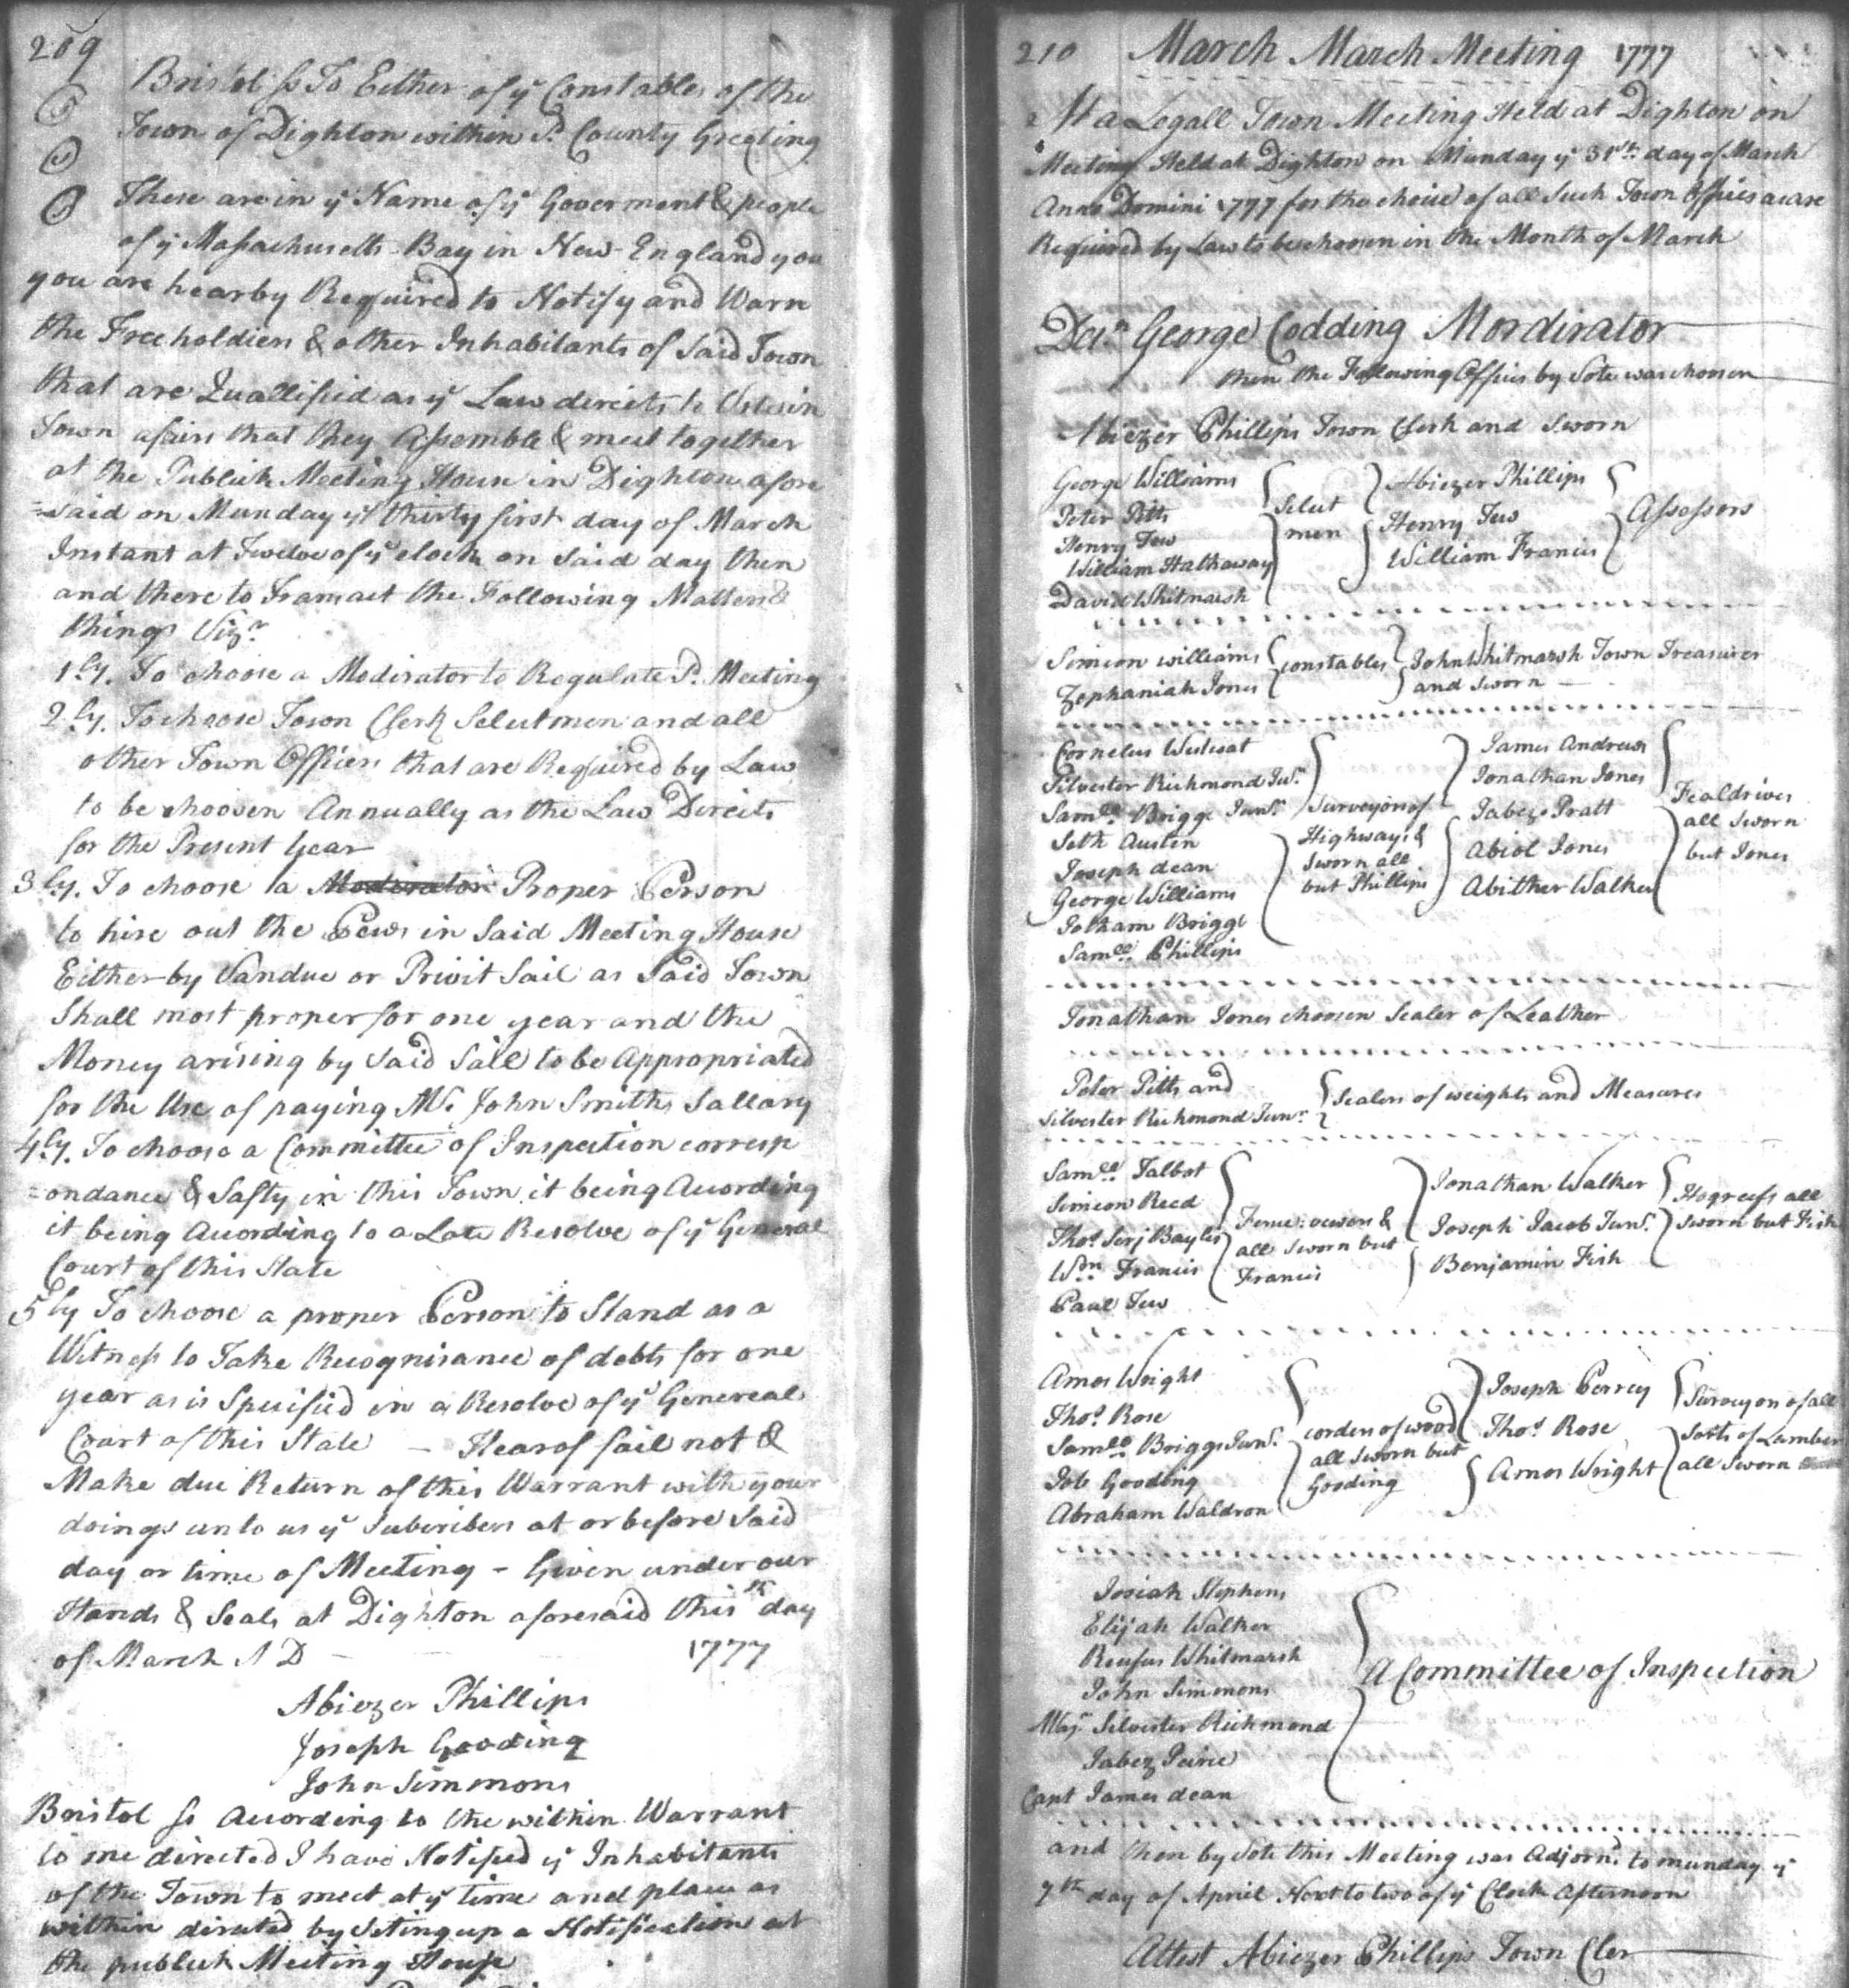 209
Bristol ss To Either of ye Constables of the
Town of Dighton within sd. County Greeting
These are in ye Name of ye Goverment & people
of ye Massachusetts-Bay in New-England you
you are hearby Required to Notify and Warn
the Freeholders & other Inhabitants of Said Town
that are Quallified as ye Law directs to Vote in
Town afairs that they Assemble & meet together
at the Publick Meeting House in Dighton afore
=said on Munday ye thirty first day of March
Instant at Twelve of ye clock on Said day then
and there to Transact the Following Matters &
things Vizr.
1ly. To choose a Moderator to Regulate sd. Meeting
2ly. To choose Town Clerk Selectmen and all
other Town Officers that are Required by Law
to be choosen Annually as the Law Directs
for the Present year
3ly. To choose a Moderator Proper Person
to hire out the Pews in Said Meeting House
Either by Vandue or Privit Sail as Said Town
Shall most proper for one year and the
Money arising by Said Sail to be Appropriated
for the Use of paying Mr. John Smiths Sallary
4ly. To choose a Committee of Inspection corresp
=ondance & Safty in this Town it being Acording
it being Acording to a Late Resolve of ye General
Court of this State
5ly To choose a proper Person to Stand as a
Witness to Take Recognisance of debts for one
year as is Specified in a Resolve of ye Genereal
Court of this State — Hearof fail not &
Make due Return of this Warrant with your
doings unto us ye Subcribers at or before Said
day or time of Meeting - Given under our
Hands & Seals at Dighton aforesaid this day
of March A D 1777
Abiezer Phillips
Joseph Gooding
John Simmons
Bristol ss Acording to the within Warrant
to me directed I have Notified ye Inhabitants
of the Town to meet at ye time and place as
within dirated by Seting up a Notification at
the publick Meeting House
210 March March Meeting 1777
At a Legall Town Meeting Held at Dighton on
Meeting Held at Dighton on Munday ye 31st day of March
Anno Domini 1777 for the choice of all Such Town Offices as are
Required by Law to be choosen in the Month of March
Dcn. George Codding Mordirator
then the Following Offices by Vote was choosen
Abiezer Phillips Town Clerk and Sworn
George Williams
Peter Pitts
Henry Tew
William Hathaway
David Whitmarsh
Select
men
Abiezer Phillips
Henry Tew
William Francis
Assessors
Simeon williams
Zephaniah Jones
constables
John Whitmarsh Town Treasurer
and Sworn
Cornelus
Silvester Richmond Junr.
Samll. Briggs Junr.
Seth Austin
Joseph dean
George Williams
Jotham Briggs
Samll. Phillips
Surveyors of
Highways &
Sworn all
but Phillips
James Andrews
Jonathan Jones
Jabez Pratt
Abiel Jones
Abitther Walker
Fealdrives
all Sworn
but Jones
Jonathan Jones choosen Sealer of Leather
Peter Pitts and
Silvester Richmond Junr.
Sealers of weights and Measures
Samll. Talbot
Simeon Reed
Thos. Bayles
Wm. Francis
Paul Tew
Fence &
all Sworn but
Francis
Jonathan Walker
Joseph Jacob Junr.
Benjamin Fish
Hogreefs all
Sworn but Fish
Amos Wright
Thos. Rose
Samll. Briggs Junr.
Job Gooding
Abraham Waldron
corders of wood
all Sworn but
Gooding
Joseph Perrey
Thos. Rose
Amos Wright
Surveyors of all
Sorts of Lumber
all Sworn
Josiah Stephens
Elijah Walker
Reufus Whitmarsh
John Simmons
Majr. Silvester Richmond
Jabez Peirce
Capt James dean
A Committee of Inspection
and then by Vote this Meeting was Adjornd. to munday ye
7th day of April Next to two of ye Clock Afternoon
Attest Abiezer Phillips Town Cler